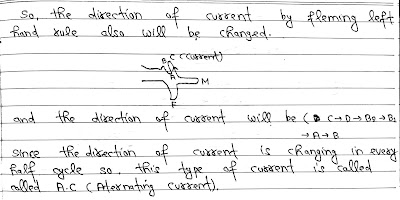 So, the direction of current by fleming left
hand rule also will be changed.
B C (current)
A
M
F
and the direction of current will be ( C→D→B2→B1
→A→B
Since the direction of current is changing in every
half cycle so, this type of current is called
called A.C (Alternating current).